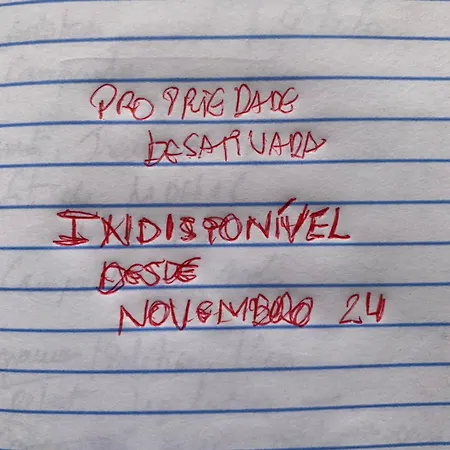 PROPRIEDADE
DESATIVADA
INDISPONÍVEL
DESDE
NOVEMBRO 24